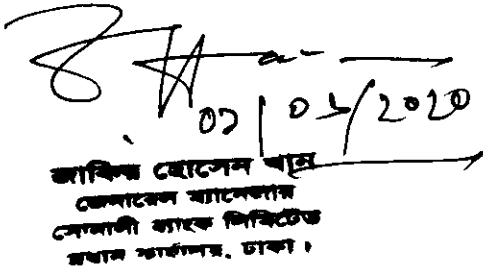 ০১/০১/2020
জাকির হোসেন খান
জেনারেল ম্যানেজার
সোনালী ব্যাংক লিমিটেড
প্রধান কার্যালয়, ঢাকা।